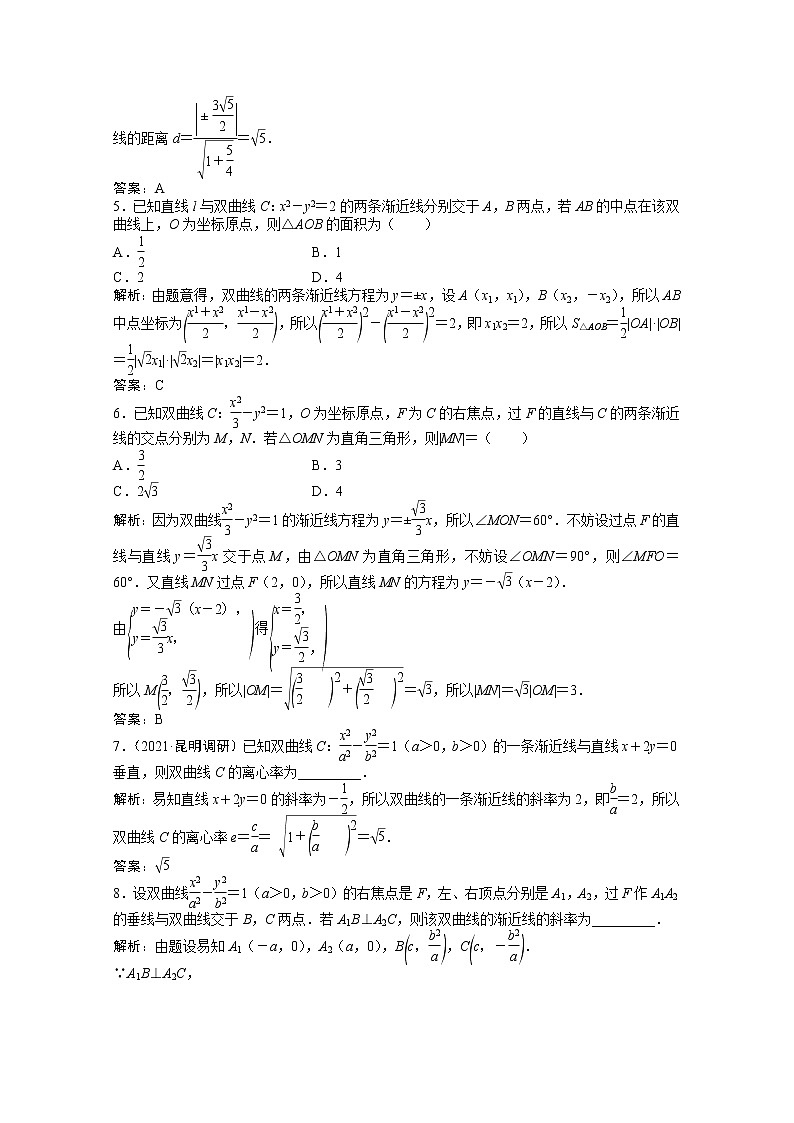 线的距离 d=|±3√5/2|/√(1+5/4)=√5.
答案:A
5.已知直线 l 与双曲线 C:x²-y²=2 的两条渐近线分别交于 A,B 两点,若 AB 的中点在该双
曲线上,O 为坐标原点,则△AOB 的面积为(  )
A.1/2 B.1
C.2 D.4
解析:由题意得,双曲线的两条渐近线方程为 y=±x,设 A(x₁,x₁),B(x₂,-x₂),所以 AB
中点坐标为((x1+x2)/2,(x1-x2)/2),所以((x1+x2)/2)²-((x1-x2)/2)²=2,即 x₁x₂=2,所以 S△AOB=1/2|OA|·|OB|
=1/2|√2x₁|·|√2x₂|=|x₁x₂|=2.
答案:C
6.已知双曲线 C:x²/3-y²=1,O 为坐标原点,F 为 C 的右焦点,过 F 的直线与 C 的两条渐近
线的交点分别为 M,N.若△OMN 为直角三角形,则|MN|=(  )
A.3/2 B.3
C.2√3 D.4
解析:因为双曲线x²/3-y²=1 的渐近线方程为 y=±√3/3x,所以∠MON=60°.不妨设过点 F 的直
线与直线 y=√3/3x 交于点 M,由△OMN 为直角三角形,不妨设∠OMN=90°,则∠MFO=
60°.又直线 MN 过点 F(2,0),所以直线 MN 的方程为 y=-√3(x-2).
由{y=-√3(x-2),y=√3/3x,)得{x=3/2,y=√3/2,)
所以 M(3/2,√3/2),所以|OM|=√((3/2)²+(√3/2)²)=√3,所以|MN|=√3|OM|=3.
答案:B
7.(2021·昆明调研)已知双曲线 C:x²/a²-y²/b²=1(a>0,b>0)的一条渐近线与直线 x+2y=0
垂直,则双曲线 C 的离心率为_________.
解析:易知直线 x+2y=0 的斜率为-1/2,所以双曲线的一条渐近线的斜率为 2,即b/a=2,所以
双曲线 C 的离心率 e=c/a=√(1+(b/a)²)=√5.
答案:√5
8.设双曲线x²/a²-y²/b²=1(a>0,b>0)的右焦点是 F,左、右顶点分别是 A₁,A₂,过 F 作 A₁A₂
的垂线与双曲线交于 B,C 两点.若 A₁B⊥A₂C,则该双曲线的渐近线的斜率为_________.
解析:由题设易知 A₁(-a,0),A₂(a,0),B(c,b²/a),C(c,-b²/a).
∵A₁B⊥A₂C,